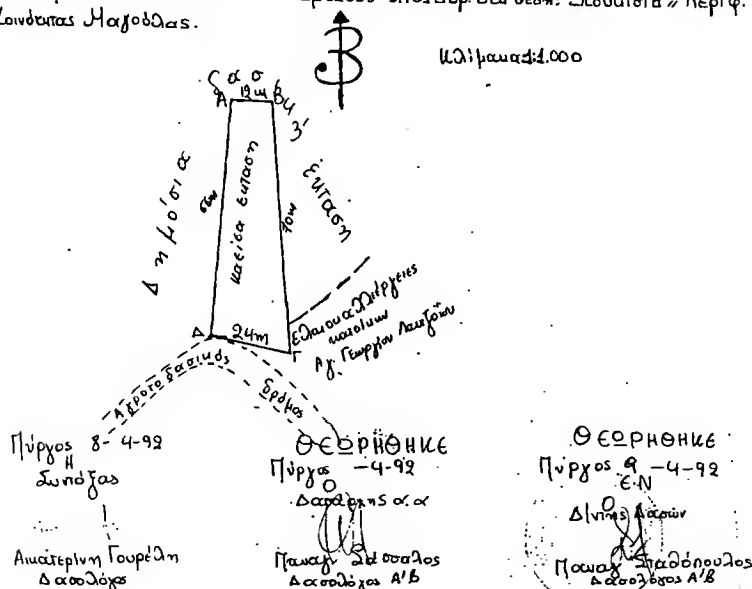 Κοινότητας Μαγούλας.
Περιφ.
Β
Κλίμακα 1:1.000
δασική
Α 12m Β
Δημόσια
έκταση
66m
καείσα έκταση
70m
Δ 24m Γ
Ελαιοκαλλιέργειες
κατοίκων
Αγ. Γεωργίου Λαντζοΐου
Αγροτοδασικός δρόμος
Πύργος 8-4-92
Η
Συντάξας
Αικατερίνη Γουρέλη
Δασολόγος
ΘΕΩΡΗΘΗΚΕ
Πύργος -4-92
Ο
Δασάρχης α.α
Παναγ.
Δασολόγος Α'Β
ΘΕΩΡΗΘΗΚΕ
Πύργος 9-4-92
Ε.Ν
Ο
Δ/ντής Δασών
Παναγ. Σταθόπουλος
Δασολόγος Α'Β